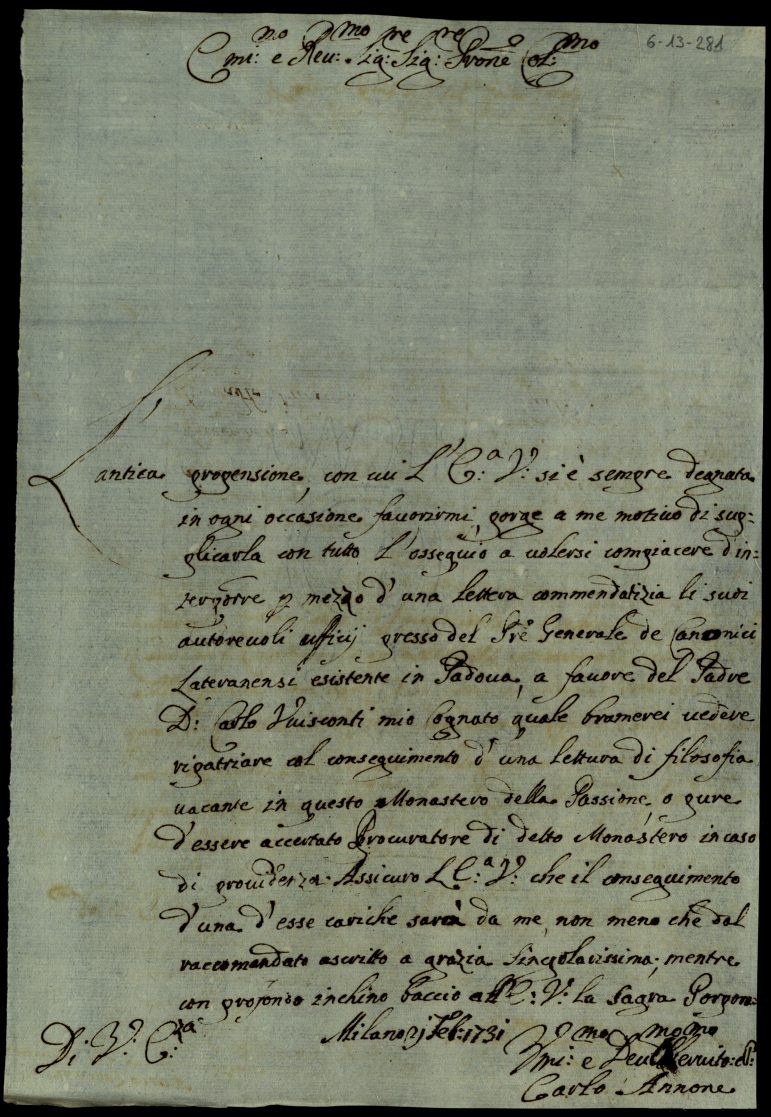 6-13-281
Emi:no e Reu:mo Sig:re Sig:re Prone Col:mo
L'antica propensione, con cui l'E:a V: si è sempre degnata
in ogni occasione favorirmi, porge a me motivo di sup=
plicarla con tutto l'ossequio a volersi compiacere d'in=
terporre p mezzo d'una lettera commendatizia li suoi
autorevoli ufficij presso del Pre Generale de Canonici
Lateranensi esistente in Padova, a favore del Padre
D: Carlo Visconti mio Cognato quale bramerei vedere
ripatriare col conseguimento d'una lettura di filosofia
vacante in questo Monastero della Passione, o pure
d'essere accertato Procuratore di detto Monastero in caso
di providenza. Assicuro L'E:a V: che il conseguimento
d'una d'esse cariche sarà da me, non meno che dal
raccomandato ascritto a grazia singolarissima, mentre
con profondo inchino baccio all'E: V: la Sagra Porpora.
Di V: E:za
Milano 21 Feb: 1731
Umi:mo e Deu:mo Seruito:
Carlo Annone